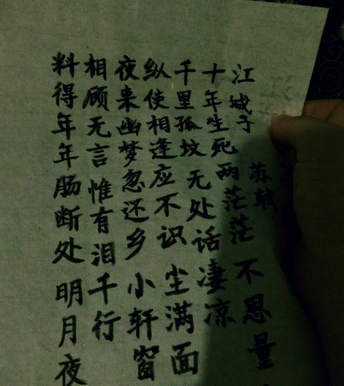 江城子 苏轼
十年生死两茫茫 不思量
千里孤坟 无处话凄凉
纵使相逢应不识 尘满面
夜来幽梦忽还乡 小轩窗
相顾无言 惟有泪千行
料得年年肠断处 明月夜